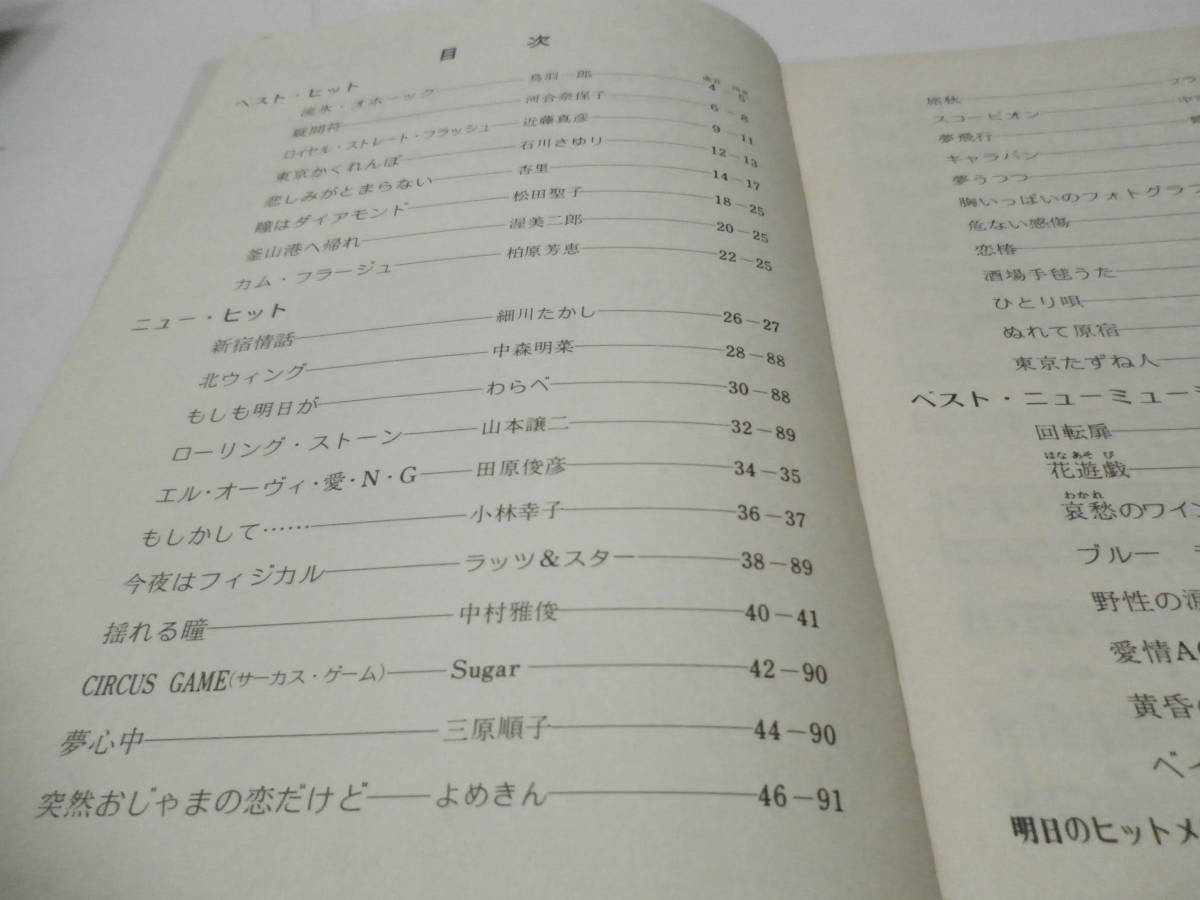 目次
ベスト・ヒット
流氷・オホーツク 鳥羽一郎 4-5
疑問符 河合奈保子 6-8
ロイヤル・ストレート・フラッシュ 近藤真彦 9-11
東京かくれんぼ 石川さゆり 12-13
悲しみがとまらない 杏里 14-17
瞳はダイアモンド 松田聖子 18-25
釜山港へ帰れ 渥美二郎 20-25
カム・フラージュ 柏原芳恵 22-25
ニュー・ヒット
新宿情話 細川たかし 26-27
北ウィング 中森明菜 28-88
もしも明日が わらべ 30-88
ローリング・ストーン 山本譲二 32-89
エル・オーヴィ・愛・N・G 田原俊彦 34-35
もしかして…… 小林幸子 36-37
今夜はフィジカル ラッツ&スター 38-89
揺れる瞳 中村雅俊 40-41
CIRCUS GAME(サーカス・ゲーム) Sugar 42-90
夢心中 三原順子 44-90
突然おじゃまの恋だけど よめきん 46-91
旅秋
スコーピオン
夢飛行
キャラバン
夢うつつ
胸いっぱいのフォトグラフ
危ない感傷
恋椿
酒場手毬うた
ひとり唄
ぬれて原宿
東京たずね人
ベスト・ニューミュー
回転扉
はなあそび
花遊戯
わかれ
哀愁のワイン
ブルー
野性の
愛情A
黄昏
ベイ
明日のヒットメ